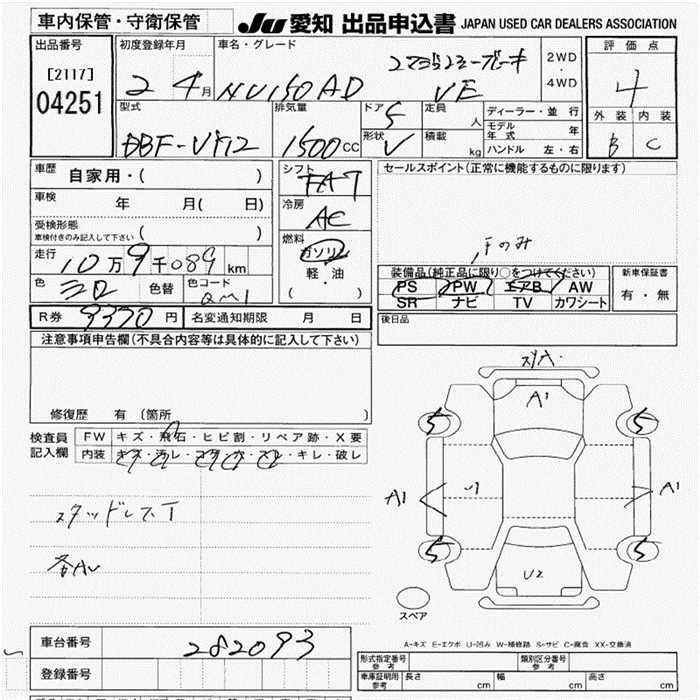 車内保管・守衛保管
JU 愛知 出品申込書 JAPAN USED CAR DEALERS ASSOCIATION
出品番号
[2117]
04251
初度登録年月
2 年 4 月
車名・グレード
NV150AD
VE
2WD
4WD
評価点
4
外装 内装
B C
型式
DBF-VY12
排気量
1500 cc
ドア
5
形状
V
定員
人
積載
kg
ディーラー・並行
モデル年式 年
ハンドル 左・右
車歴
自家用・( )
車検
年 月( 日)
受検形態
車検付きのみ記入して下さい ( )
走行
10万9千089 km
色
色替
色コード
QM1
シフト
FAT
冷房
AC
燃料
ガソリン
軽・油
( )
セールスポイント(正常に機能するものに限ります)
装備品(純正品に限り○をつけてください)
PS PW エアB AW
SR ナビ TV カワシート
新車保証書
有・無
R券 9330 円 名変通知期限 月 日
後日品
注意事項申告欄(不具合内容等は具体的に記入して下さい)
修復歴 有 (箇所 )
検査員
記入欄
FW キズ・飛石・ヒビ割・リペア跡・X要
内装 キズ・汚レ・コゲ・穴・スレ・キレ・破レ
スタッドレスT
各AU
A1
5 5
A1 A1
5 5
U2
スペア
A-キズ E-エクボ U-凹み W-補修跡 S-サビ C-腐食 XX-交換済
車台番号 282093
登録番号
形式指定番号 参考
類別区分番号 参考
車庫証明用 参考 長さ cm 幅 cm 高さ cm